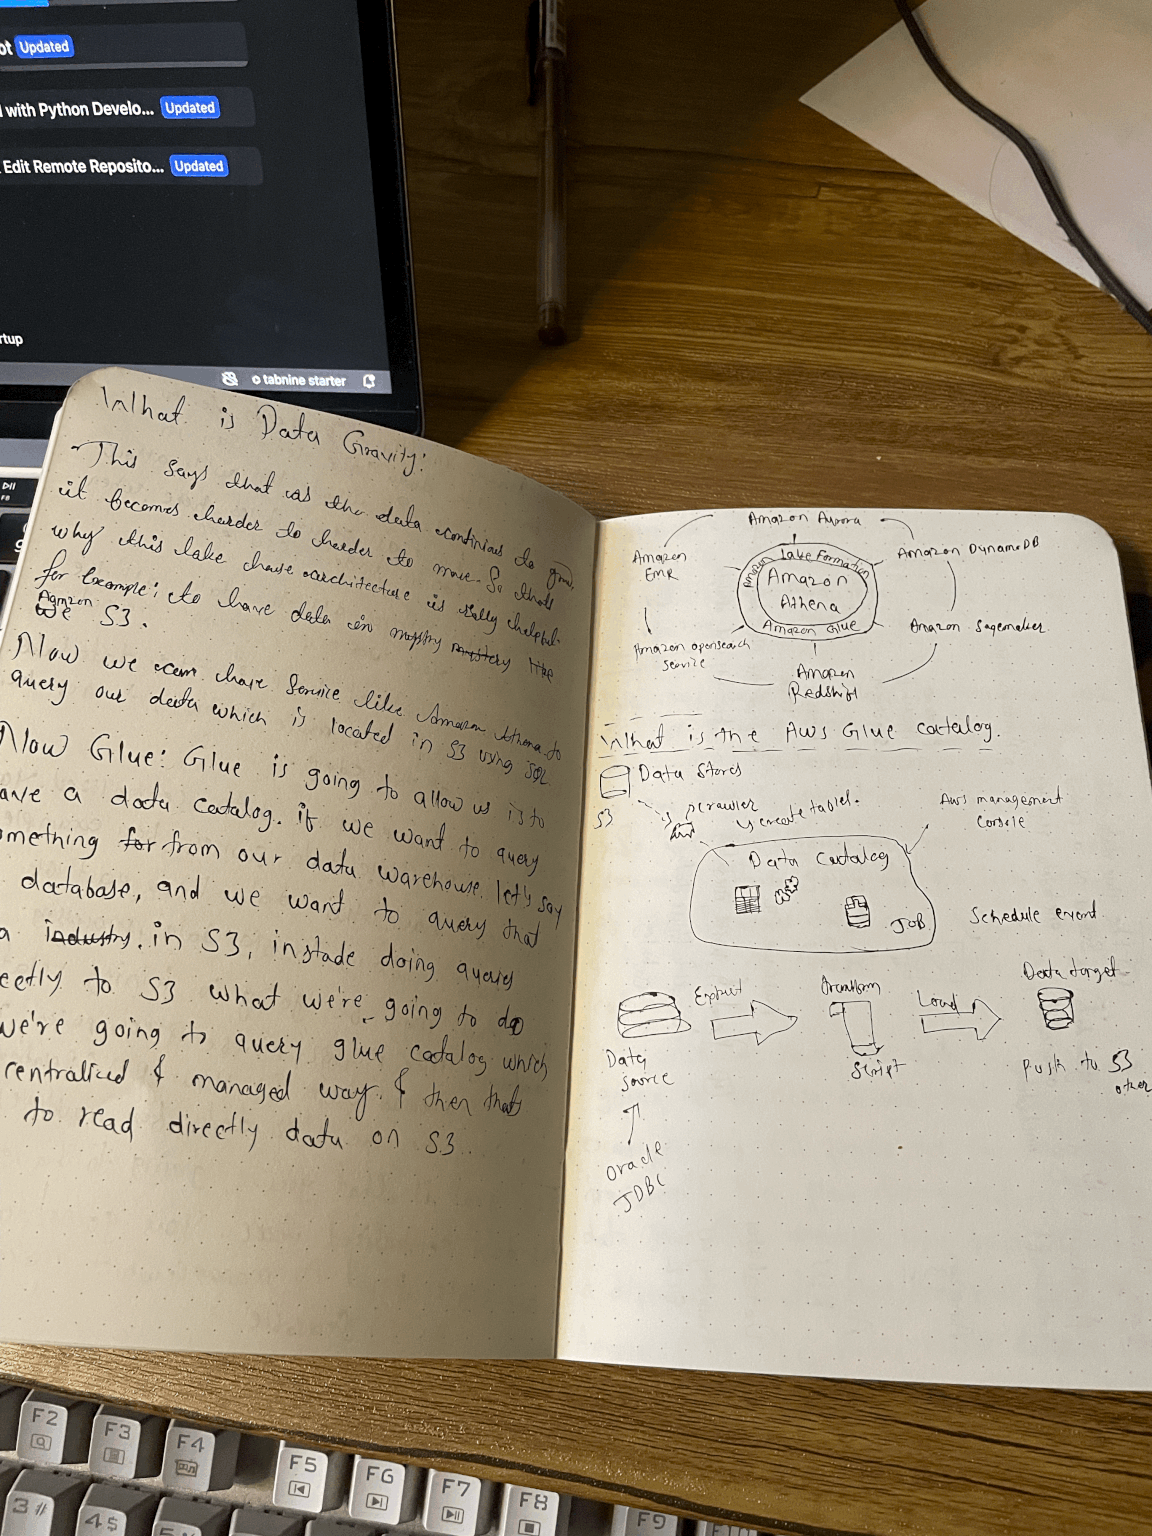 ot Updated
with Python Develo... Updated
Edit Remote Reposito... Updated
rtup
tabnine starter
What is Data Gravity:
This says that as the data continius to
it becomes harder to harder to move. So thats
why this lake house architecture is really helpful.
for Example: to have data in mystry mystery like
Amazon
we S3.
Now we can have Service like Amazon Athena to
query our data which is located in S3 using SQL
Now Glue: Glue is going to allow us is to
ave a data catalog. if we want to query
omething for from our data warehouse. let's say
database, and we want to query that
a industry. in S3, instade doing query
ectly to S3 what we're going to do
we're going to query glue catalog which
centralised & managed way. & then that
to read directly data on S3.
Amazon Aurora
Amazon
EMR
Amazon DynamoDB
Amazon Lake Formation
Amazon
Athena
Amazon Glue
Amazon opensearch
service
Amazon Sagemaker
Amazon
Redshift
What is the Aws Glue catalog.
Data Stores
S3
crawler
create table.
Aws management
Console
Data Catalog
JOB
Schedule event.
Data target
Extract
transform
Load
Data
source
Script
Push to S3
other
oracle
JDBC
PII
F8
F2
F3
F4
F5
F6
F7
F8
F9
F10
3 #
4 $